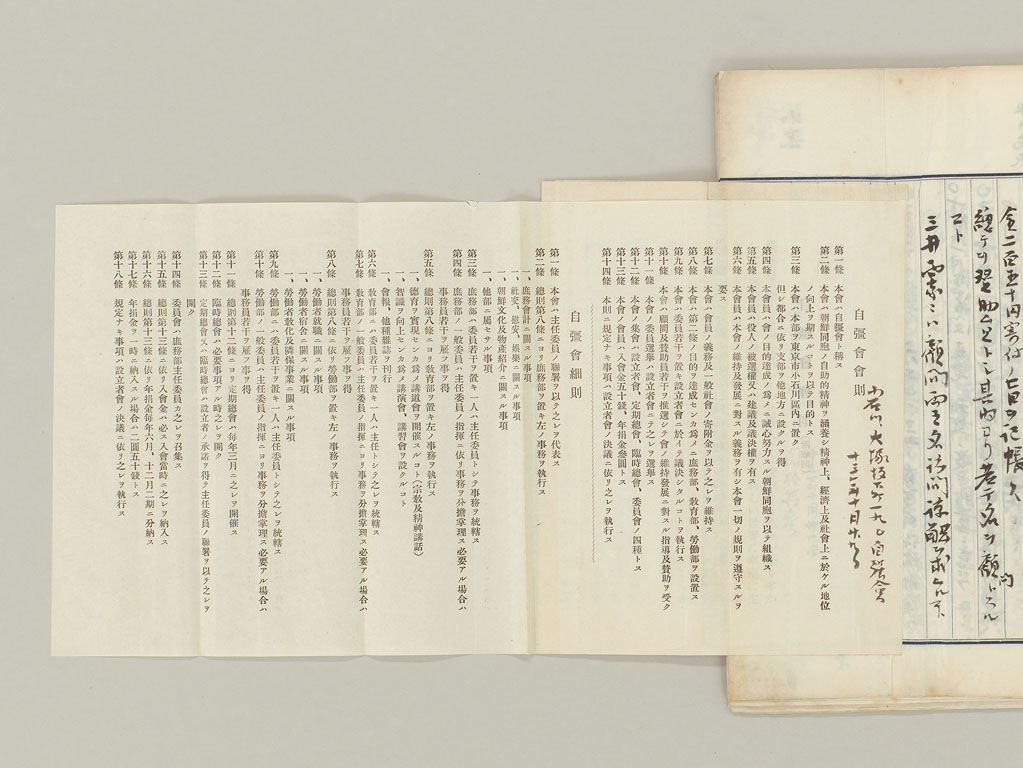 金二百五十円寄付ノ旨ヲ記帳ス
自彊會會則
第一條　本會ハ自彊會ト稱ス
第二條　本會ハ朝鮮同胞ノ自助的精神ヲ涵養シ精神上、經濟上及社會上ニ於ケル地位
ノ向上ヲ期スルコトヲ以テ目的トス
第三條　本會ハ本部ヲ東京市小石川區内ニ置ク
但シ都合ニ依リ支部ヲ他地方ニ設クルヲ得
第四條　本會ハ會ノ目的達成ノ爲メニ誠心努力スル朝鮮同胞ヲ以テ組織ス
第五條　本會員ハ役員ノ被選權又ハ建議及議決權ヲ有ス
第六條　本會員ハ本會ノ維持及發展ニ對スル義務ヲ有シ本會一切ノ規則ヲ遵守スルヲ
要ス
第七條　本會ハ會員ノ義務及一般社會ノ寄附金ヲ以テ之レヲ維持ス
第八條　本會ハ第二條ノ目的ヲ達成センカ爲メニ庶務部、敎育部、勞働部ヲ設置ス
第九條　本會ハ委員若干ヲ置キ設立者會ニ於イテ議決シタルコトヲ執行ス
第十條　本會ハ顧問及贊助員若干ヲ推選シテ會ノ維持發展ニ對スル指導及贊助ヲ受ク
第十一條　本會ノ委員選擧ハ設立者會ニテ之レヲ選擧ス
第十二條　本會ノ集會ハ設立者會、定期總會、臨時總會、委員會ノ四種トス
第十三條　本會ノ會員ハ入會金五十錢、年捐金參圓トス
第十四條　本則ニ規定ナキ事項ハ設立者會ノ決議ニ依リ之レヲ執行ス
自彊會細則
第一條　本會ハ主任委員ノ聯署ヲ以テ之レヲ代表ス
第二條　總則第八條ニヨリ庶務部ヲ置キ左ノ事務ヲ執行ス
一、庶務會計ニ關スル事項
一、社交、慰安、娯樂ニ關スル事項
一、朝鮮文化及物產紹介ニ關スル事項
一、他部ニ屬セサル事項
第三條　庶務部ハ委員若干ヲ置キ一人ハ主任委員トシテ事務ヲ統轄ス
第四條　庶務部ノ一般委員ハ主任委員ノ指揮ニ依リ事務ヲ分擔掌理ス必要アル場合ハ
事務員若干ヲ雇フ事ヲ得
第五條　總則第八條ニヨリ敎育部ヲ置キ左ノ事務ヲ執行ス
一、德育ヲ實現センカ爲メ講道會ヲ開催スルコト（宗敎及精神講話）
一、智識ヲ向上センカ爲メ講演會、講習會ヲ設クルコト
一、會報、他種雜誌ヲ刊行
第六條　敎育部ハ委員若干ヲ置キ一人ハ主任トシテ之レヲ統轄ス
第七條　敎育部ノ一般委員ハ主任委員ノ指揮ニヨリ事務ヲ分擔掌理ス必要アル場合ハ
事務員若干ヲ雇フ事ヲ得
第八條　總則第八條ニ依リ勞働部ヲ置キ左ノ事務ヲ執行ス
一、勞働者就職ニ關スル事項
一、勞働者宿舍ニ關スル事項
一、勞働者敎化及隣保事業ニ關スル事項
第九條　勞働部ニハ委員若干ヲ置キ一人ハ主任委員トシテ之レヲ統轄ス
第十條　勞働部ノ一般委員ハ主任委員ノ指揮ニヨリ事務ヲ分擔掌理ス必要アル場合ハ
事務員若干ヲ雇フ事ヲ得
第十一條　總則第十二條ニヨリ定期總會ハ每年三月ニ之レヲ開催ス
第十二條　臨時總會ハ必要事項アル時之レヲ開ク
第十三條　定期總會又ハ臨時總會ハ設立者ノ承諾ヲ得テ主任委員ノ聯署ヲ以テ之レヲ
開ク
第十四條　委員會ハ庶務部主任委員カ之レヲ召集ス
第十五條　總則第十三條ニ依リ入會金ハ必ス入會當時ニ之レヲ納入ス
第十六條　總則第十三條ニ依リ年捐金每年六月、十二月二期ニ分納ス
第十七條　年捐金ヲ一時ニ納入スル場合ハ二圓五十錢トス
第十八條　規定ナキ事項ハ設立者會ノ決議ニ依リ之レヲ執行ス